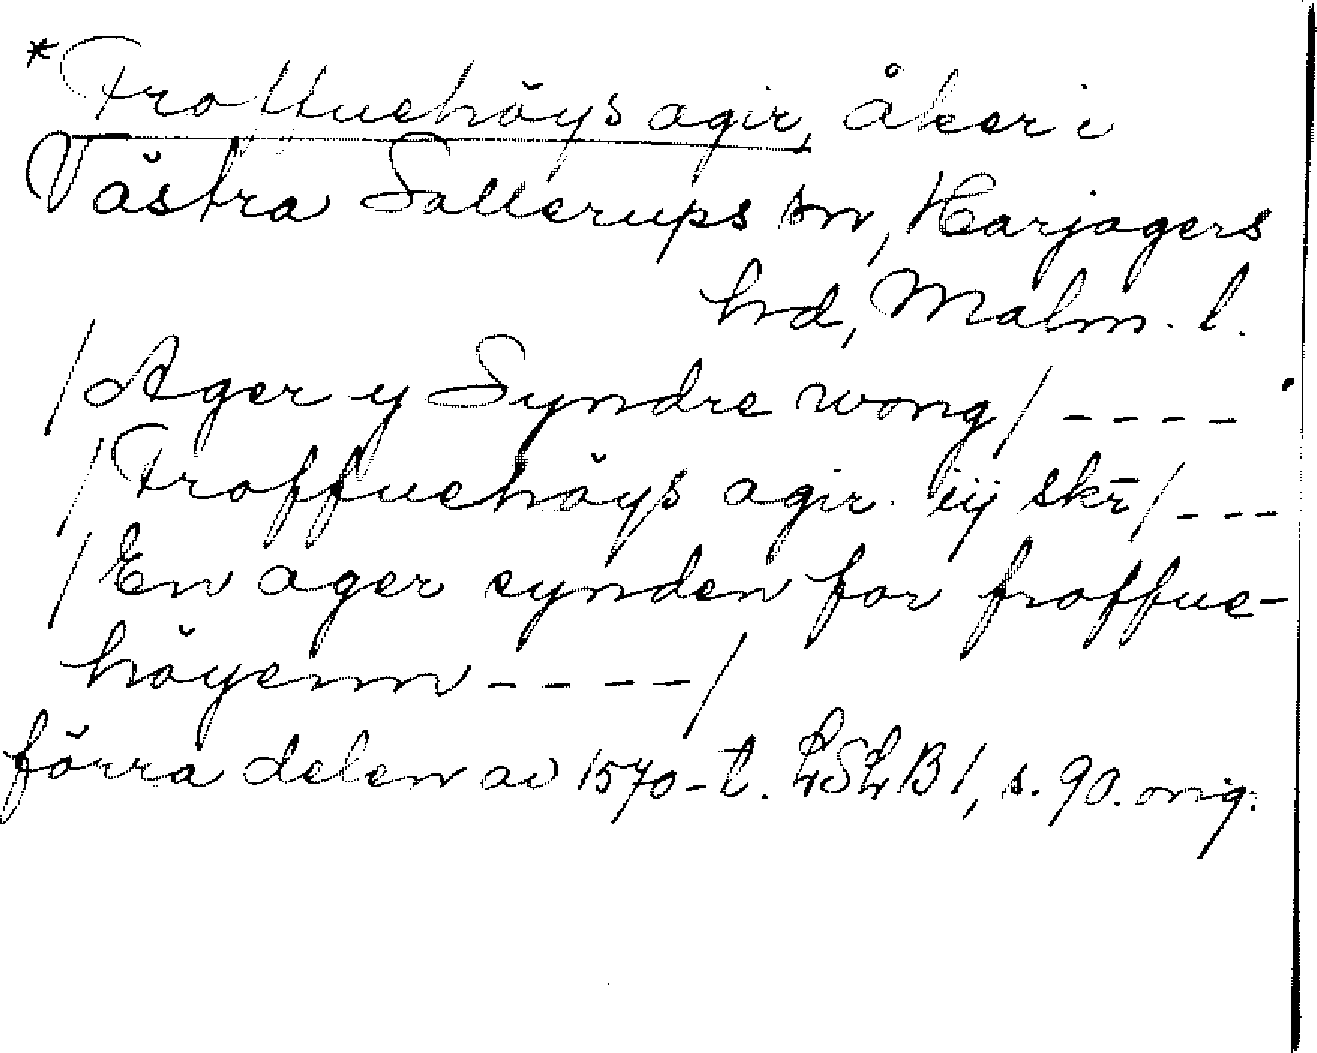 *Froffuehöys agir, åker i
Västra Sallerups sn, Harjagers
hrd, Malm. l.
/Ager y Syndre wong/ - - - -
/Froffuehöys agir iij skr̄/ - - -
/En ager synden for froffue-
höyenn - - - - /
förra delen av 1570-t. LSLB 1, s. 90. orig.